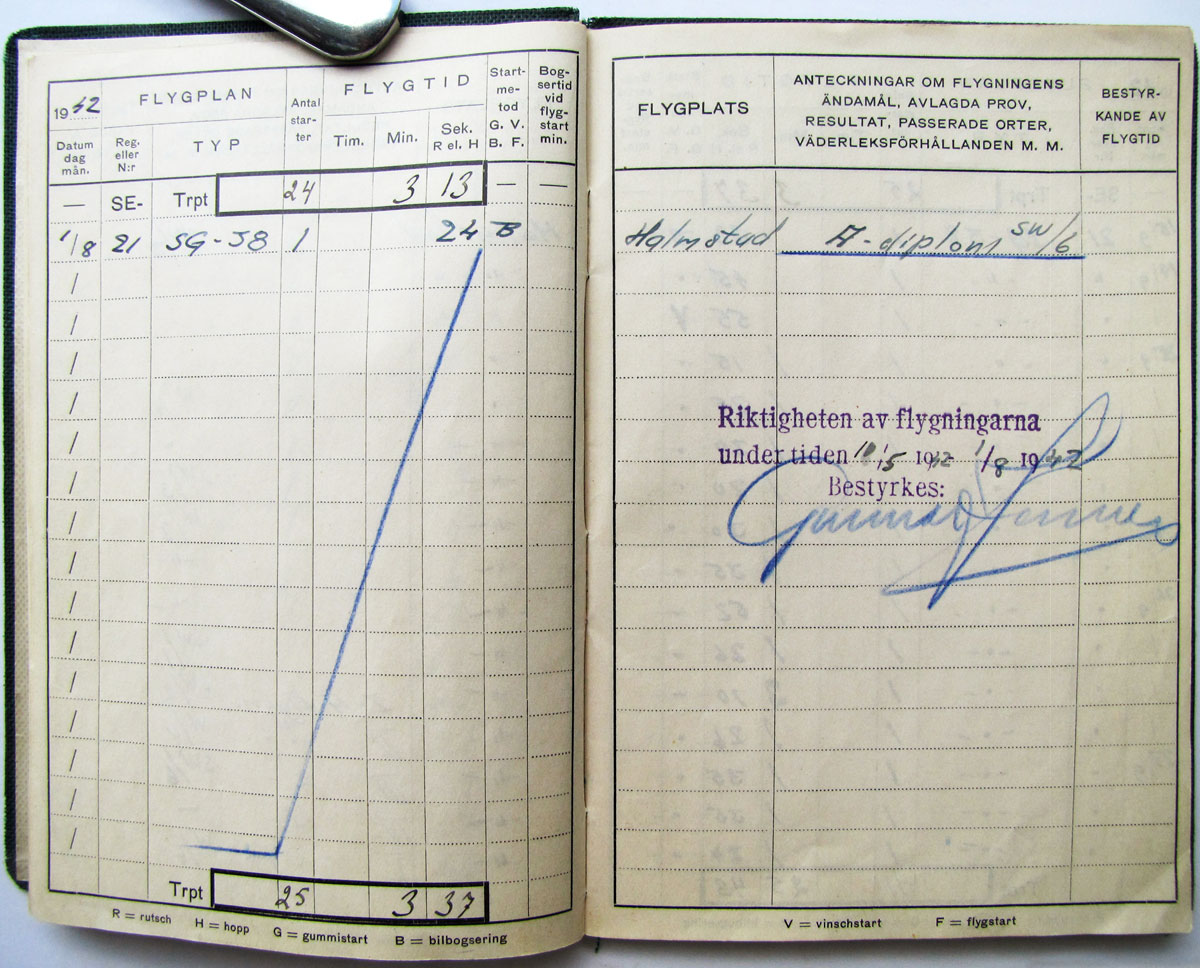 1942
FLYGPLAN
Antal star- ter
FLYGTID
Start- me- tod G. V. B. F.
Bog- sertid vid flyg- start min.
Datum dag mån.
Reg. eller N:r
TYP
Tim.
Min.
Sek. R el. H
— SE- Trpt 24 3 13 — —
1/8 21 SG-38 1 24 B
/
/
/
/
/
/
/
/
/
/
/
/
/
/
/
Trpt 25 3 37
R = rutsch H = hopp G = gummistart B = bilbogsering
FLYGPLATS
ANTECKNINGAR OM FLYGNINGENS
ÄNDAMÅL, AVLAGDA PROV,
RESULTAT, PASSERADE ORTER,
VÄDERLEKSFÖRHÅLLANDEN M. M.
BESTYR-
KANDE AV
FLYGTID
Halmstad A-diplom SW/6
Riktigheten av flygningarna
under tiden 10/5 1942- 1/8 1942
Bestyrkes:
Gunnar
V = vinschstart F = flygstart